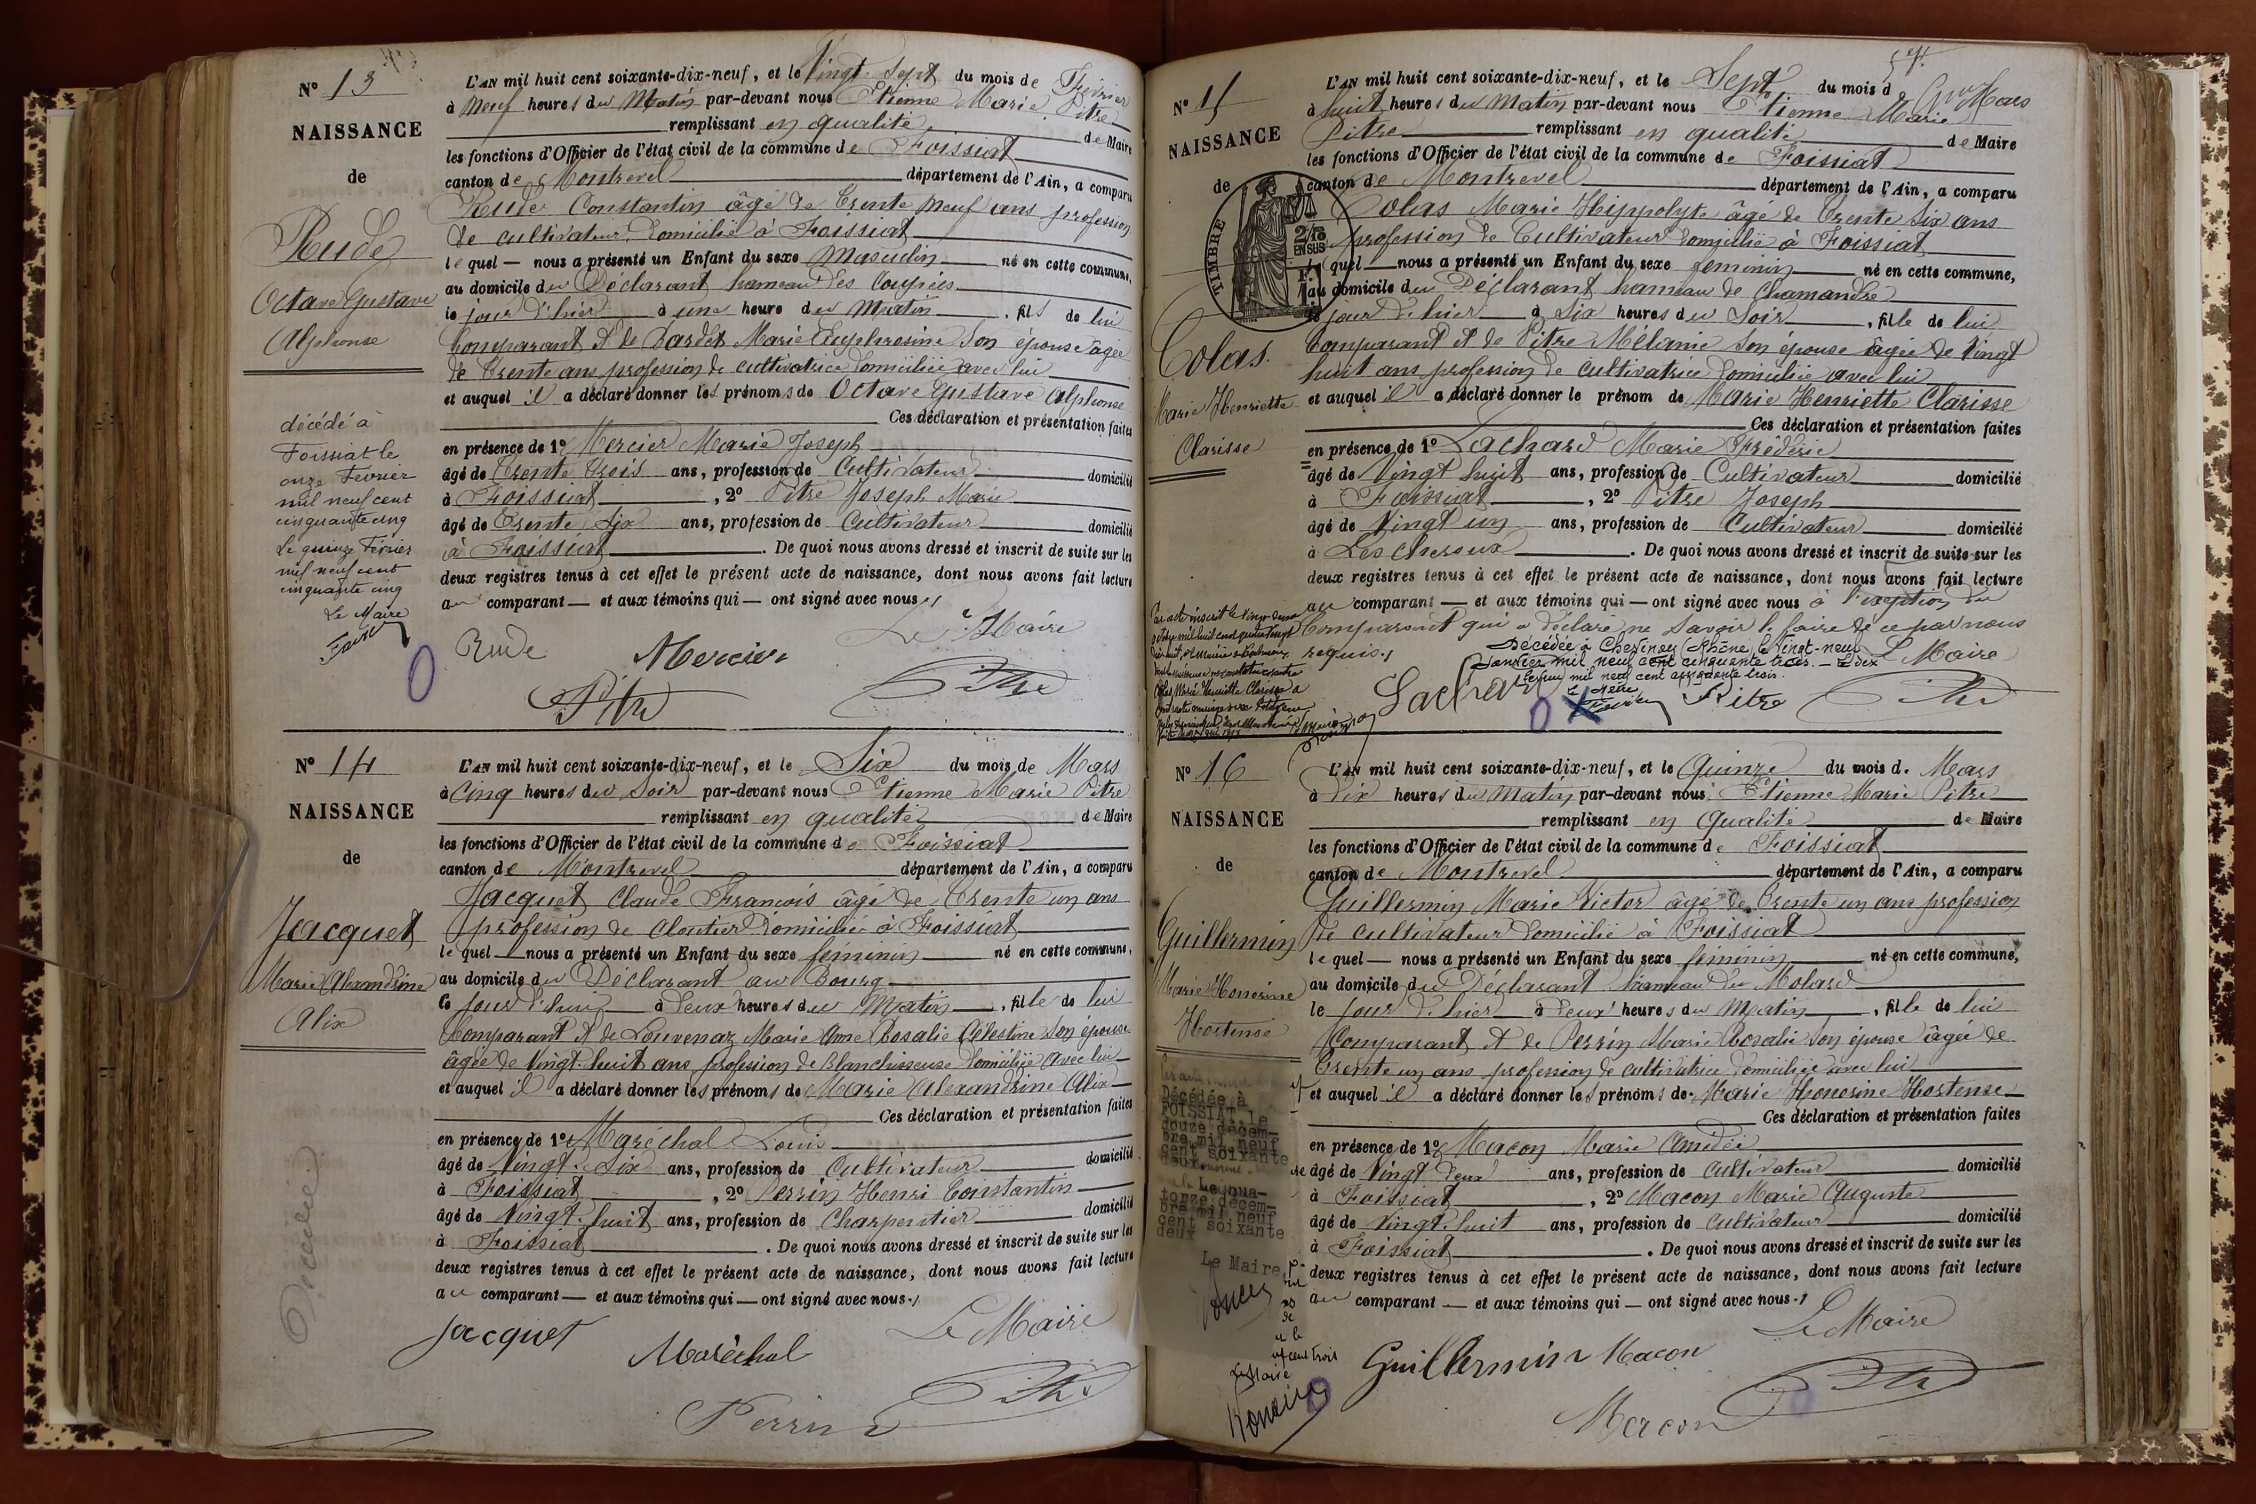 N° 13
NAISSANCE
de
Rude
Octave Gustave
Alphonse
décédé à
Foissiat le
onze Février
mil neuf cent
cinquante cinq
Le quinze Février
mil neuf cent
cinquante cinq
Le Maire
L'AN mil huit cent soixante-dix-neuf, et le Vingt Sept du mois de Février
à Neuf heures du Matin par-devant nous Etienne Marie Pitre
remplissant en qualité de Maire
les fonctions d'Officier de l'état civil de la commune de Foissiat
canton de Montrevel département de l'Ain, a comparu
Rude Constantin âgé de Trente neuf ans profession
de cultivateur domicilié à Foissiat
le quel — nous a présenté un Enfant du sexe Masculin né en cette commune,
au domicile du Déclarant hameau des
le jour d'hier à une heure du Matin, fils de lui
Comparant et de Sardet Marie Euphrosine Son épouse âgée
de Trente ans profession de cultivatrice domiciliée avec lui
et auquel il a déclaré donner les prénoms de Octave Gustave Alphonse
Ces déclaration et présentation faites
en présence de 1° Mercier Marie Joseph
âgé de Trente Trois ans, profession de Cultivateur domicilié
à Foissiat, 2° Pitre Joseph Marie
âgé de Trente Six ans, profession de Cultivateur domicilié
à Foissiat. De quoi nous avons dressé et inscrit de suite sur les
deux registres tenus à cet effet le présent acte de naissance, dont nous avons fait lecture
au comparant — et aux témoins qui — ont signé avec nous
Le Maire
Rude Mercier
Pitre Pitre
N° 14
NAISSANCE
de
Jacquet
Marie Alexandrine
Alix
Décédée
L'AN mil huit cent soixante-dix-neuf, et le Six du mois de Mars
à Cinq heures du Soir par-devant nous Etienne Marie Pitre
remplissant en qualité de Maire
les fonctions d'Officier de l'état civil de la commune de Foissiat
canton de Montrevel département de l'Ain, a comparu
Jacquet Claude François âgé de Trente un ans
profession de Cloutier domicilié à Foissiat
le quel nous a présenté un Enfant du sexe féminin né en cette commune,
au domicile du Déclarant au Bourg
le jour d'hui à deux heures du Matin, fille de lui
Comparant et de Louvenaz Marie Anne Rosalie Célestine Son épouse
âgée de Vingt huit ans profession de Blanchisseuse domiciliée avec lui
et auquel il a déclaré donner les prénoms de Marie Alexandrine Alix
Ces déclaration et présentation faites
en présence de 1° Maréchal Louis
âgé de Vingt Six ans, profession de Cultivateur domicilié
à Foissiat, 2° Perrin Henri Constantin
âgé de Vingt huit ans, profession de Charpentier domicilié
à Foissiat. De quoi nous avons dressé et inscrit de suite sur les
deux registres tenus à cet effet le présent acte de naissance, dont nous avons fait lecture
au comparant — et aux témoins qui — ont signé avec nous
Le Maire
Jacquet Maréchal
Perrin Pitre
N° 15
NAISSANCE
de
TIMBRE
2/10 EN SUS
Colas
Marie Henriette
Clarisse
L'AN mil huit cent soixante-dix-neuf, et le Sept du mois de Mars
à huit heures du Matin par-devant nous Etienne Marie
Pitre remplissant en qualité de Maire
les fonctions d'Officier de l'état civil de la commune de Foissiat
canton de Montrevel département de l'Ain, a comparu
Colas Marie Hippolyte âgé de Trente Six ans
profession de Cultivateur domicilié à Foissiat
quel — nous a présenté un Enfant du sexe féminin né en cette commune,
au domicile du Déclarant hameau de Chamandré
jour d'hier à Six heures du Soir, fille de lui
Comparant et de Pitre Mélanie Son épouse âgée de Vingt
huit ans profession de cultivatrice domiciliée avec lui
et auquel il a déclaré donner le prénom de Marie Henriette Clarisse
Ces déclaration et présentation faites
en présence de 1° Lachard Marie Frédéric
âgé de Vingt huit ans, profession de Cultivateur domicilié
à Foissiat, 2° Pitre Joseph
âgé de Vingt un ans, profession de Cultivateur domicilié
à Lescheroux. De quoi nous avons dressé et inscrit de suite sur les
deux registres tenus à cet effet le présent acte de naissance, dont nous avons fait lecture
au comparant — et aux témoins qui — ont signé avec nous à l'exeption du
Comparant qui a déclaré ne Savoir le faire de ce par nous
requis
Décédée à (Rhône) le vingt-neuf
Janvier mil neuf cent cinquante trois. — Le dix
Février mil neuf cent cinquante trois.
Le Maire
Lachard Pitre Pitre
N° 16
NAISSANCE
de
Guillermin
Marie Honorine
Hortense
Décédée à
FOISSIAT le
douze décem-
bre mil neuf
cent soixante
deux
Le qua-
torze décem-
bre mil neuf
cent soixante
deux
Le Maire,
Le Maire
L'AN mil huit cent soixante-dix-neuf, et le Quinze du mois de Mars
à Dix heures du Matin par-devant nous Etienne Marie Pitre
remplissant en qualité de Maire
les fonctions d'Officier de l'état civil de la commune de Foissiat
canton de Montrevel département de l'Ain, a comparu
Guillermin Marie Victor âgé de Trente un ans profession
de cultivateur domicilié à Foissiat
le quel — nous a présenté un Enfant du sexe féminin né en cette commune,
au domicile du Déclarant hameau du Molard
le jour d'hier à deux heures du Matin, fille de lui
Comparant et de Perrin Marie Rosalie Son épouse âgée de
Trente un ans profession de cultivatrice domiciliée avec lui
et auquel il a déclaré donner les prénoms de Marie Honorine Hortense
Ces déclaration et présentation faites
en présence de 1° Macon Marie Amédée
âgé de Vingt deux ans, profession de Cultivateur domicilié
à Foissiat, 2° Macon Marie Auguste
âgé de Vingt huit ans, profession de Cultivateur domicilié
à Foissiat. De quoi nous avons dressé et inscrit de suite sur les
deux registres tenus à cet effet le présent acte de naissance, dont nous avons fait lecture
au comparant — et aux témoins qui — ont signé avec nous
Le Maire
Guillermin Macon
Macon Pitre